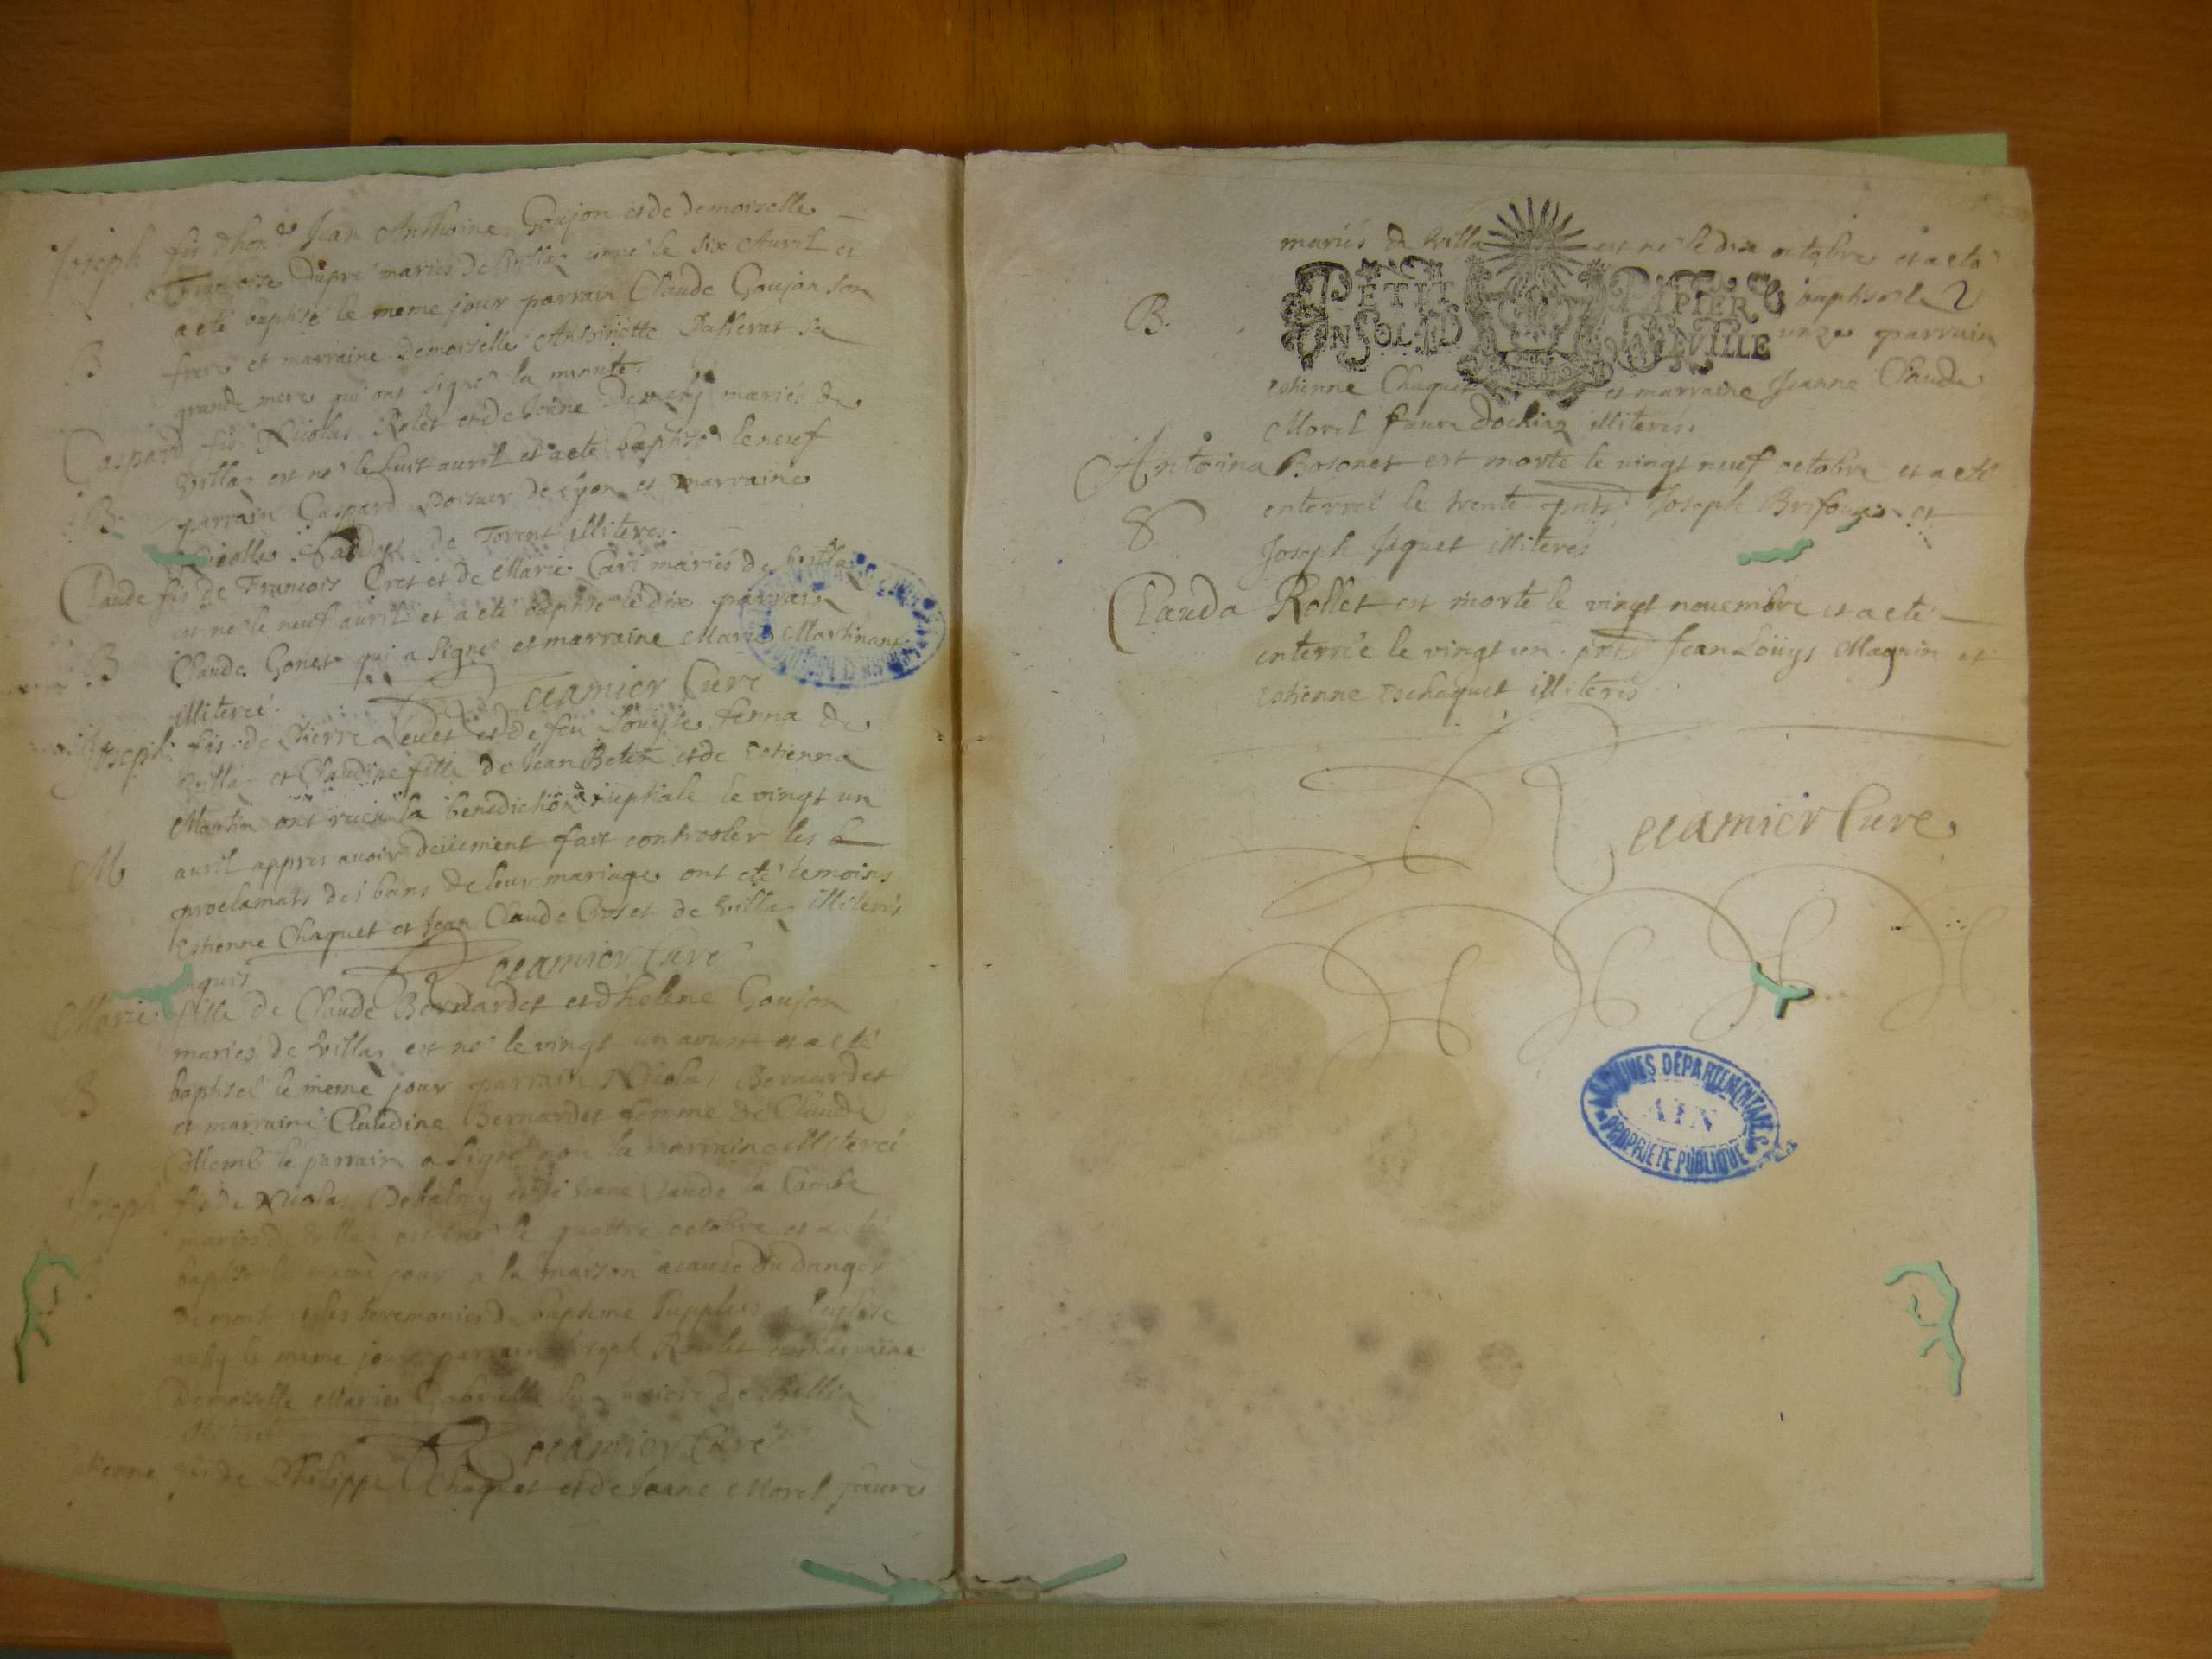 Joseph fis d'hon.e Jean Anthoine Goujon et de demoiselle
Françoise Dupré mariés de Villa, est né le six Avril et
a eté baptisé le meme jour parrain Claude Goujon son
B frere et marraine Demoiselle Antoinette Passerat sa
grande mere qui ont signé la minute.
Gaspard fis Nicolas Rolet et de Jeane mariés de
Villa est né le huit avril et a eté baptisé le neuf
B. parrain Gaspard de Lyon et marraine
de Torent illiteres.
Claude fis de Francois Cret et de Marie Cari mariés de Villa
est né le neuf avril et a eté baptisé le dix parrain
B Claude Gonet qui a signé et marraine Marie Martinand
illiteré. Curé
Joseph fis de Pierre Levet et de feu Louyse ferra de
Villa et Claudine fille de Jean Beten et de Estienna
Martin ont receu la benediction nuptiale le vingt un
M avril appres avoir deüement fait controoler les
proclamats des bans de leur mariage ont eté temoins
Estienne Chaquet et Jean Claude Croset de Villa illiterés
Curé
Marie fille de Claude Bernardet et d'helene Goujon
mariés de Villa est né le vingt un aoust et a eté
B baptisé le meme jour parrain Nicolas Bernardet
et marraine Claudine Bernardet femme de Claude
le parrain a signé non la marraine illiteré
Joseph fis de Nicolas et de Jeane Claude la Combe
mariés de Villa est né le quattre octobre et a eté
baptisé le meme jour a la maison a cause du danger
de mort et les seremonies de bapteme supplees a l'eglise
aussy le meme jour parrain Joseph Roulet et marraine
Demoiselle Marie Gabrielle de
Curé
Estienne fis de Philippe Chaquet et de Jeane Morel faure
mariés de Villa est né le dix octobre et a eté
PETIT PAPIER
B. baptisé le
UN SOL LA FEVILLE
unze parrain
Estienne Chaquet et marraine Jeanne Claude
Morel faure illiteres.
Antoina Bosonet est morte le vingt neuf octobre et a eté
enterreé le trente pnts Joseph et
Joseph Jiquet illiterés
Clauda Rollet est morte le vingt novembre et a eté
enterrée le vingt un. pnts Jean Loüys Magnin et
Estienne Eschaquet illiterés
Curé
ARCHIVES DÉPARTEMENTALES
AIN
PROPRIÉTÉ PUBLIQUE